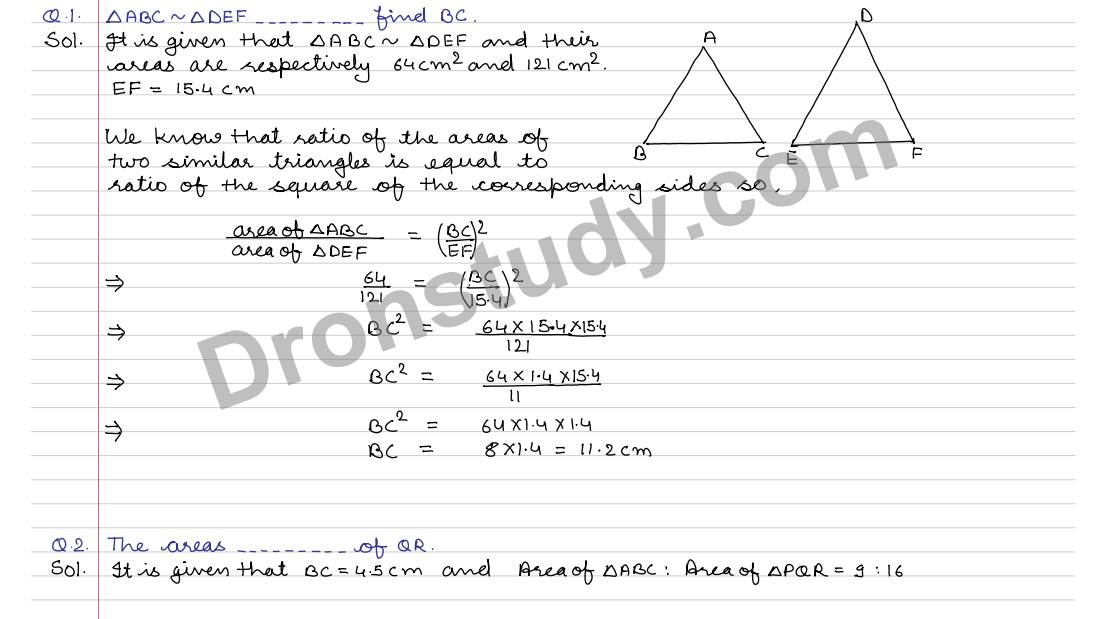 Q.1. △ABC ~ △DEF _ _ _ _ _ _ _ _ _ find BC.
Sol. It is given that △ABC ~ △DEF and their
areas are respectively 64cm² and 121cm².
EF = 15.4 cm
A
D
B
C
E
F
We know that ratio of the areas of
two similar triangles is equal to
ratio of the square of the corresponding sides so,
area of △ABC / area of △DEF = (BC/EF)²
⇒ 64/121 = (BC/15.4)²
⇒ BC² = 64 × 15.4 × 15.4 / 121
⇒ BC² = 64 × 1.4 × 15.4 / 11
⇒ BC² = 64 × 1.4 × 1.4
BC = 8 × 1.4 = 11.2 cm
Q.2. The areas _ _ _ _ _ _ _ _ _ of QR.
Sol. It is given that BC = 4.5 cm and Area of △ABC : Area of △PQR = 9 : 16
Dronstudy.com